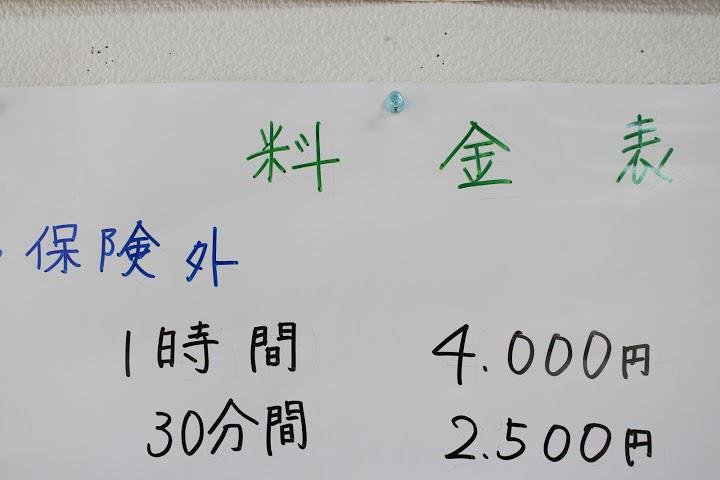 料金表
・保険外
1時間 4.000円
30分間 2.500円